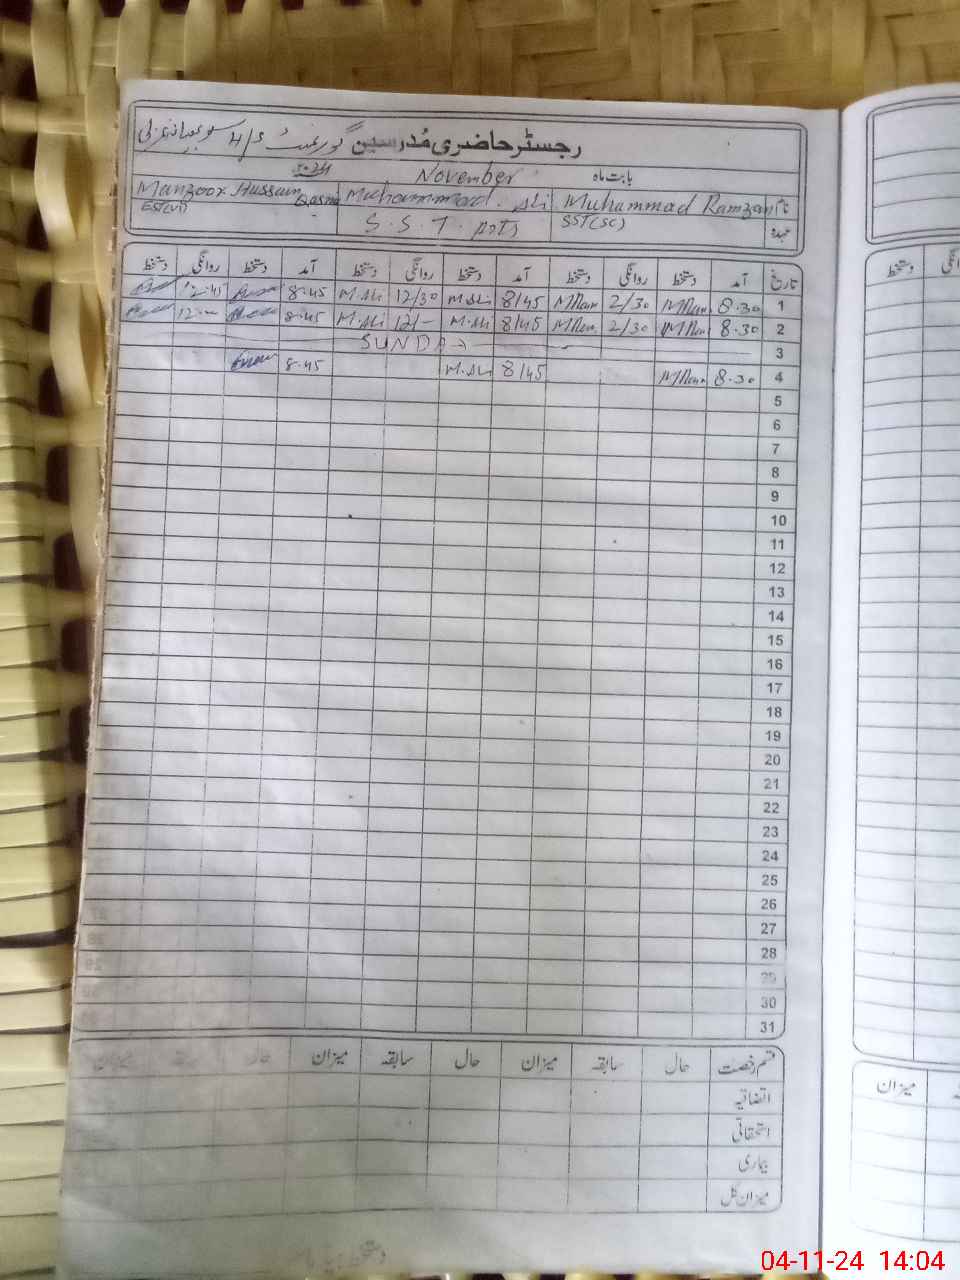 رجسٹر حاضری مُدرسین گورنمنٹ H/S
بابت ماہ November
نام Muhammad Ramzan Muhammad Ali Manzoor Hussain
عہدہ SST(SC) S.S.T. Arts EST(VT)
تاریخ آمد دستخط روانگی دستخط آمد دستخط روانگی دستخط آمد دستخط روانگی دستخط
1 8.30 2/30 8/45 M.Ali 12/30 M.Ali 8.45 12.45
2 8.30 2/30 8/45 M.Ali 12/- M.Ali 8.45
3 SUNDAY
4 8.30 8/45 M.Ali 8.45
5
6
7
8
9
10
11
12
13
14
15
16
17
18
19
20
21
22
23
24
25
26
27
28
29
30
31
قسم رخصت حال سابقہ میزان حال سابقہ میزان حال سابقہ میزان
اتفاقیہ
استحقاقی
بیماری
میزان کل
دستخط
روانگی
میزان
04-11-24 14:04